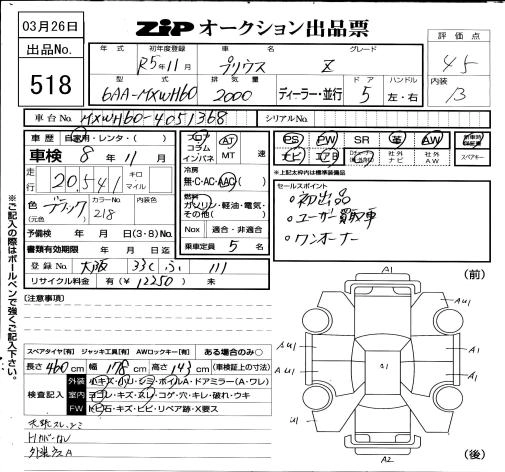 03月26日
ZIP オークション出品票
出品No.
518
年式 初年度登録 車名 グレード
R5年11月 プリウス Z
評価点
4.5
型式 排気量 ドア ハンドル
6AA-MXWH60 2000 ディーラー・並行 5 左・右
内装
B
車台No. MXWH60-4051368 シリアルNo.
車歴 自家用・レンタ・( )
車検 8年11月
走行 20,541 キロ マイル
色 (元色) ブラック カラーNo. 218 内装色
予備検 年 月 日(3・8)No.
書類有効期限 年 月 日迄
登録No. 大阪 111
リサイクル料金 有(¥12250) 未
フロア コラム インパネ AT MT 速
冷房 無・C・AC・AAC( )
燃料 ガソリン・軽油・電気・その他( )
Nox 適合・非適合
乗車定員 5 名
PS PW SR 革 AW 新車時保証書
ナビ エアB 社外ナビ 社外AW スペアキー
※上記太枠内は標準装備品
セールスポイント
○初出品
○ユーザー買取車
○ワンオーナー
(注意事項)
スペアタイヤ[有] ジャッキ工具[有] AWロックキー[有] ある場合のみ○
長さ 460cm 幅 178cm 高さ 143cm (車検証上の寸法)
検査記入
外装 小キズ・小U・シミ・ホイルA・ドアミラー(A・ワレ)
室内 ヨゴレ・キズ・スレ・コゲ・穴・キレ・破れ・ウキ
FW トビ石・キズ・ヒビ・リペア跡・X要ス
外装ウスA
※ご記入の際はボールペンで強くご記入下さい。
(前)
A1
AU1
A1
AU1
AU1
A1
A1
U1
A1
A2
(後)